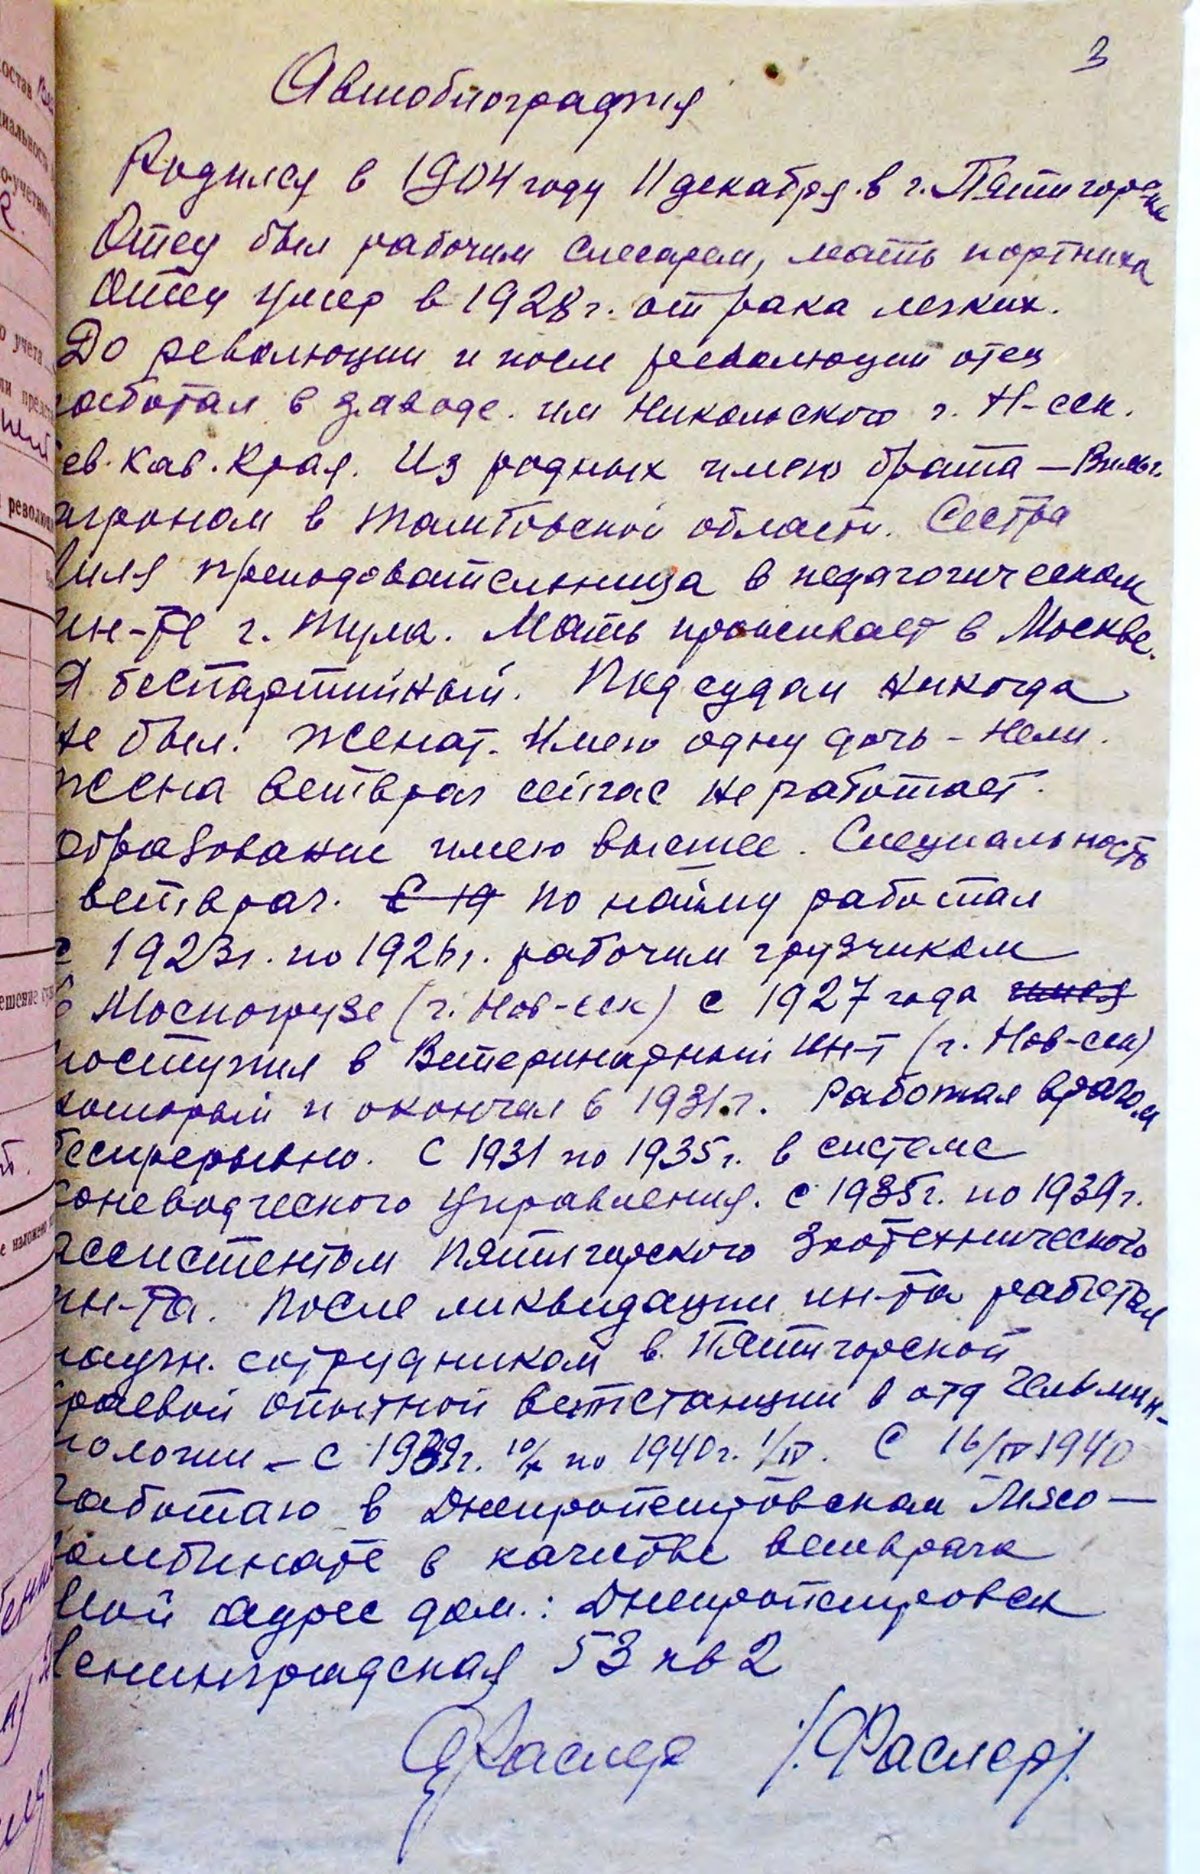 3
Автобиография
Родился в 1904 году 11 декабря в г. Пятигорске
Отец был рабочим слесарем, мать портниха
Отец умер в 1928 г. от рака легких.
До революции и после революции отец
работал в заводе. им Никольского г. Н-сек.
Сев. Кав. Края. Из родных имею брата —
агроном в Тамбовской области. Сестра
Лиля преподовательница в педагогическом
ин-те г. Тула. Мать проживает в Москве.
Я беспартийный. Под судом никогда
не был. Женат. Имею одну дочь - Нели.
Жена ветврач сейчас не работает.
Образование имею высшее. Специальность
ветврач. С 19 по найму работал
с 1923 г. по 1926 г. рабочим грузчиком
в (г. Нов-сек) с 1927 года имея
поступил в Ветеринарный ин-т (г. Нов-сек)
который и окончил в 1931 г. Работал врачом
беспрерывно. С 1931 по 1935 г. в системе
коневодческого Управления. с 1935 г. по 1939 г.
ассистентом Пятигорского Зоотехнического
ин-та. После ликвидации ин-та работал
научн. сотрудником в Пятигорской
краевой опытной ветстанции в отд гельмин-
тологии — с 1939 г. 10/X по 1940 г. 1/IV. С 16/IV 1940
работаю в Днепропетровском Мясо—
комбинате в качестве ветврача
Мой адрес дом.: Днепропетровск
Ленинградская 53 кв 2
Фаслер /Фаслер/.